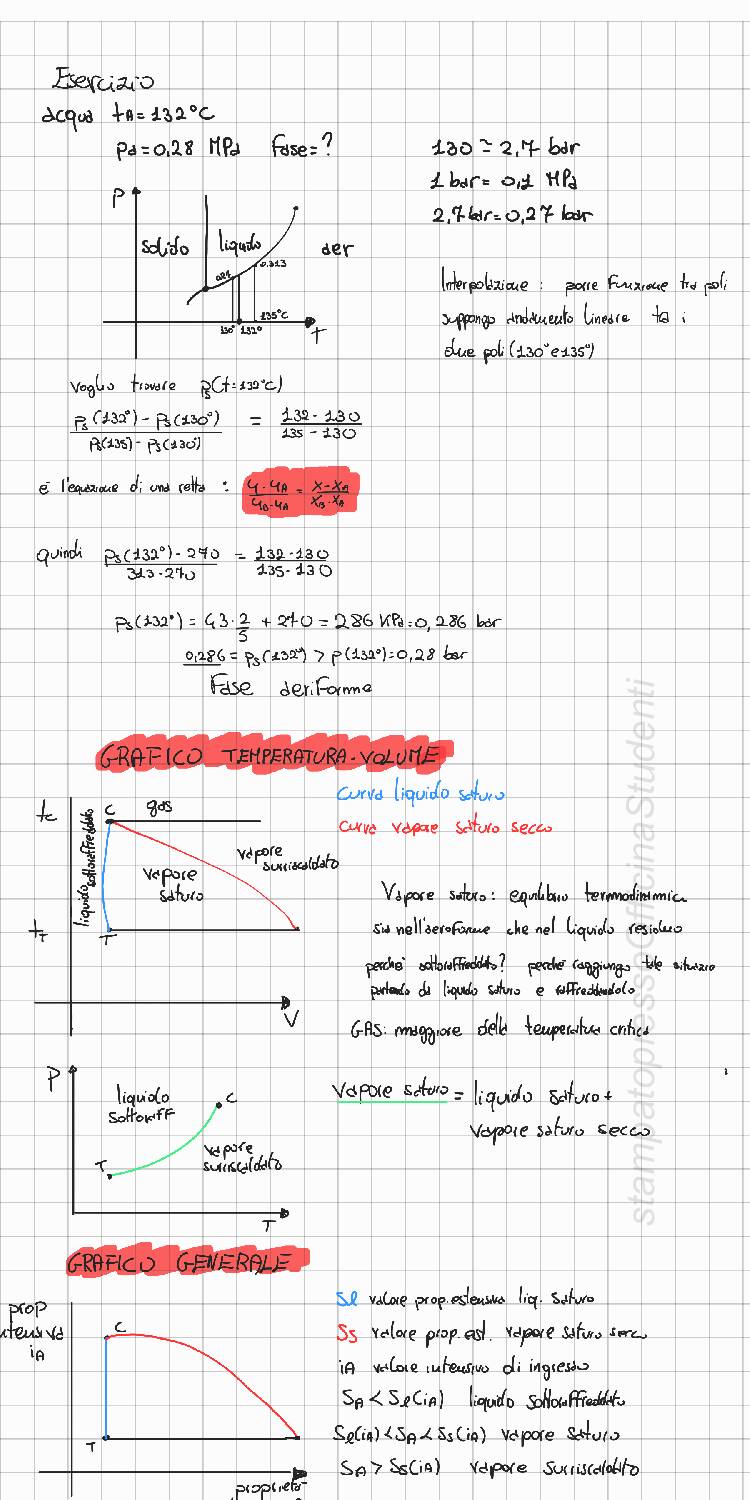 Esercizio
acqua tA = 132°C
pa = 0,28 MPa Fase = ?
130 ≃ 2,7 bar
1 bar = 0,1 MPa
2,7 bar = 0,27 bar
P
solido
liquido
aer
0,27
0.313
130°
132°
135°C
T
Interpolazione : porre Funzione tra poli
suppongo andamento lineare tra i
due poli (130° e 135°)
Voglio trovare ps(t=132°C)
ps(132°) - ps(130°) = 132 - 130
ps(135) - ps(130) 135 - 130
è l'equazione di una retta : y - yA = x - xA
yB - yA xB - xA
quindi ps(132°) - 270 = 132 - 130
313 - 270 135 - 130
ps(132°) = 43 · 2 + 270 = 286 KPa = 0,286 bar
5
0,286 = ps(132°) > p(132°) = 0,28 bar
Fase aeriforme
GRAFICO TEMPERATURA - VOLUME
tc
C
gas
liquido sottoraffreddato
vapore
saturo
vapore
surriscaldato
tT
T
V
Curva liquido saturo
curva vapore saturo secco
Vapore saturo : equilibrio termodinamico
sia nell'aeroforme che nel liquido residuo
perché sottoraffreddato? perché raggiungo tale situazio
partendo da liquido saturo e raffreddandolo
GAS : maggiore della temperatura critica
P
liquido
sottoraff
C
vapore
surriscaldato
T
T
Vapore saturo = liquido saturo +
vapore saturo secco
GRAFICO GENERALE
prop
ntensiva
iA
C
T
proprietà
Sl valore prop. estensiva liq. saturo
Ss valore prop. est. vapore saturo secc
iA valore intensivo di ingresso
SA < Sl(iA) liquido sottoraffreddato
Sl(iA) < SA < Ss(iA) vapore saturo
SA > Ss(iA) vapore surriscaldato
stampatopressoOfficinaStudenti